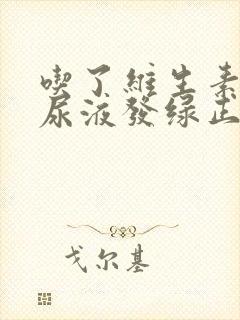 喫了維生素
尿液發绿正
戈尔基